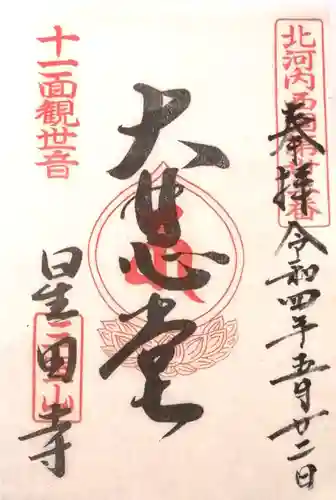 北河内西国第三番
奉拝
令和四年五月廿二日
十一面観世音
大悲堂
星田寺